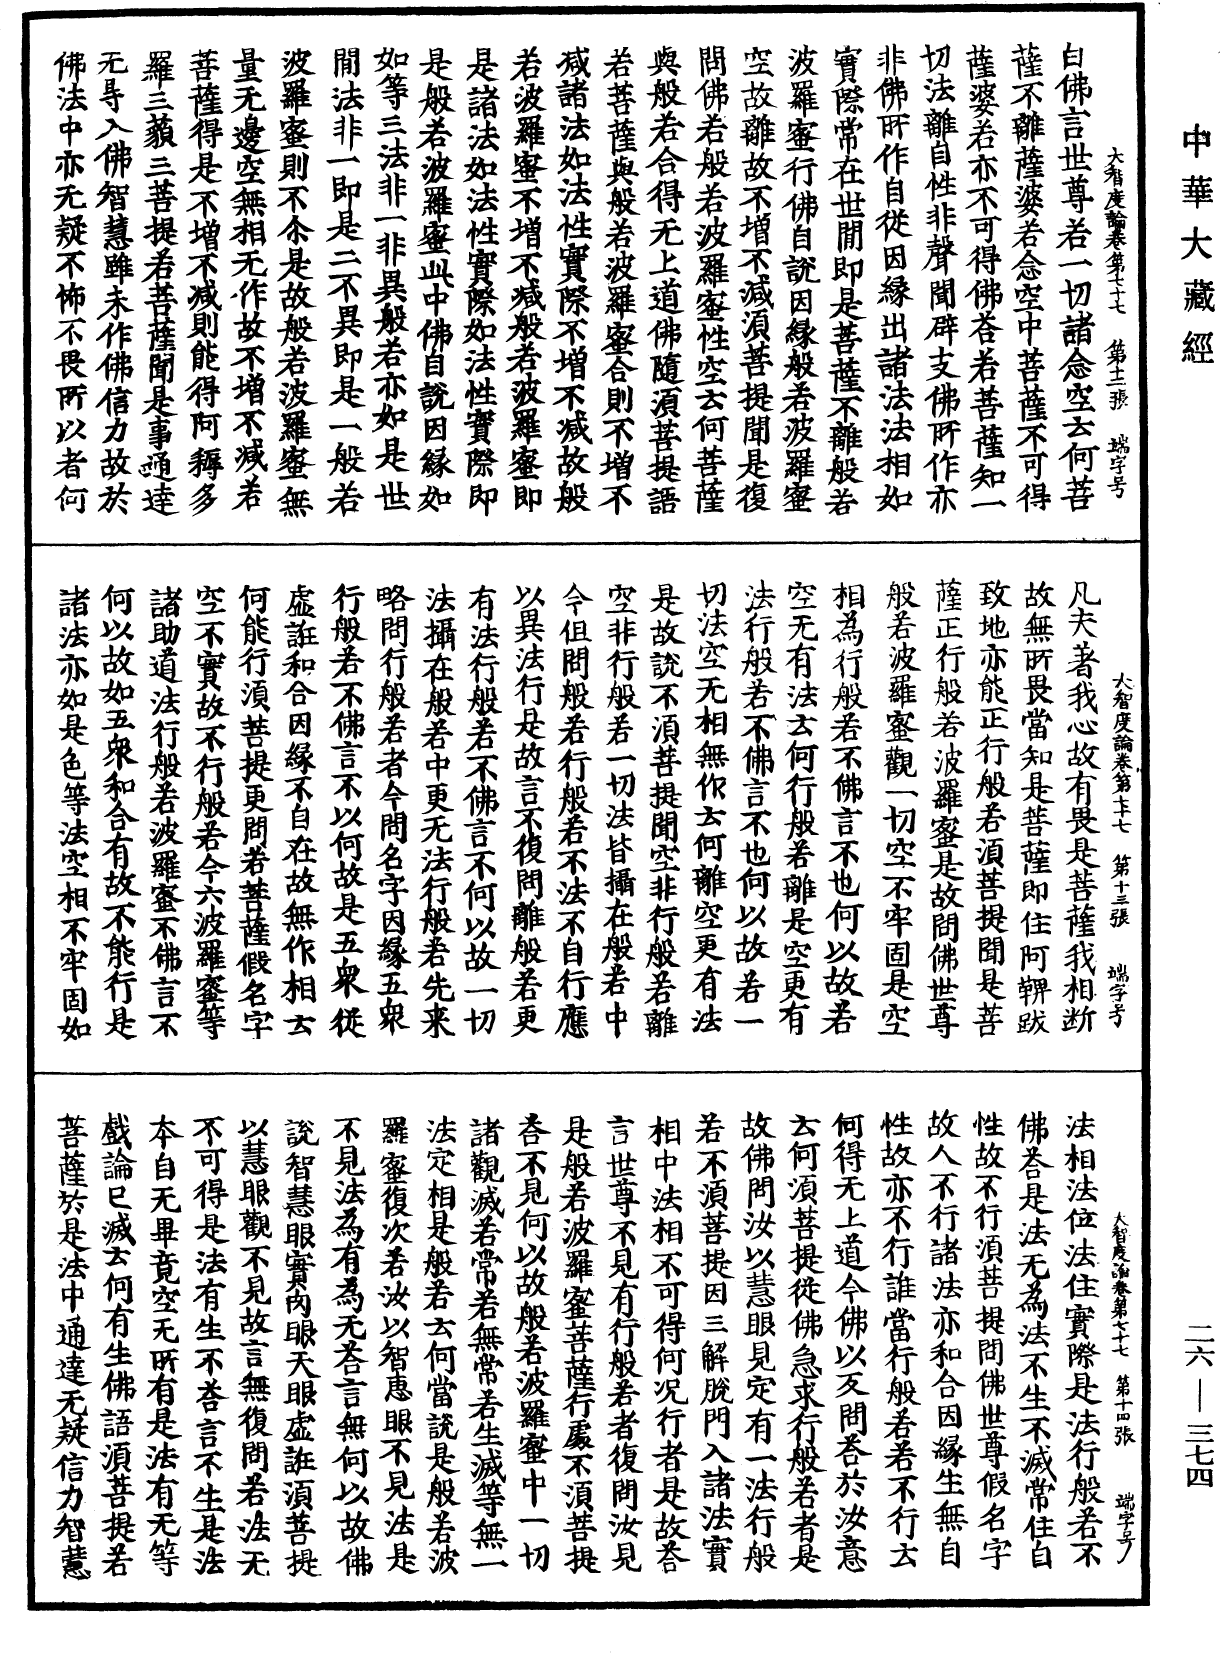 中華大藏經
大智度論卷第七十七 第十二張 端字号
白佛言世尊若一切諸念空云何菩
薩不離薩婆若念空中菩薩不可得
薩婆若亦不可得佛荅若菩薩知一
切法離自性非聲聞辟支佛所作亦
非佛所作自從因緣出諸法法相如
實際常在世間即是菩薩不離般若
波羅蜜行佛自說因緣般若波羅蜜
空故離故不增不減須菩提聞是復
問佛若般若波羅蜜性空云何菩薩
與般若合得无上道佛隨須菩提語
若菩薩與般若波羅蜜合則不增不
減諸法如法性實際不增不減故般
若波羅蜜不增不減般若波羅蜜即
是諸法如法性實際如法性實際即
是般若波羅蜜此中佛自說因緣如
如等三法非一非異般若亦如是世
間法非一即是二不異即是一般若
波羅蜜則不尒是故般若波羅蜜無
量无邊空無相无作故不增不減若
菩薩得是不增不減則能得阿耨多
羅三藐三菩提若菩薩聞是事通達
无㝵入佛智慧雖未作佛信力故於
佛法中亦无疑不怖不畏所以者何
大智度論卷第七十七 第十三張 端字号
凡夫著我心故有畏是菩薩我相断
故無所畏當知是菩薩即住阿鞞跋
致地亦能正行般若須菩提聞是菩
薩正行般若波羅蜜是故問佛世尊
般若波羅蜜觀一切空不牢固是空
相為行般若不佛言不也何以故若
空无有法云何行般若離是空更有
法行般若不佛言不也何以故若一
切法空无相無作云何離空更有法
是故說不須菩提聞空非行般若離
空非行般若一切法皆攝在般若中
今但問般若行般若不法不自行應
以異法行是故言不復問離般若更
有法行般若不佛言不何以故一切
法攝在般若中更无法行般若先来
略問行般若者今問名字因緣五衆
行般若不佛言不以何故是五衆從
虛誑和合因緣不自在故無作相云
何能行須菩提更問若菩薩假名字
空不實故不行般若今六波羅蜜等
諸助道法行般若波羅蜜不佛言不
何以故如五衆和合有故不能行是
諸法亦如是色等法空相不牢固如
大智度論卷第七十七 第十四張 端字号
法相法位法住實際是法行般若不
佛荅是法无為法不生不滅常住自
性故不行須菩提問佛世尊假名字
故人不行諸法亦和合因緣生無自
性故亦不行誰當行般若若不行云
何得无上道今佛以反問荅於汝意
云何須菩提從佛急求行般若者是
故佛問汝以慧眼見定有一法行般
若不須菩提因三解脫門入諸法實
相中法相不可得何況行者是故荅
言世尊不見有行般若者復問汝見
是般若波羅蜜菩薩行處不須菩提
荅不見何以故般若波羅蜜中一切
諸觀滅若常若無常若生滅等無一
法定相是般若云何當說是般若波
羅蜜復次若汝以智惠眼不見法是
不見法為有為无荅言無何以故佛
說智慧眼實肉眼天眼虛誑須菩提
以慧眼觀不見故言無復問若法无
不可得是法有生不荅言不生是法
本自无畢竟空无所有是法有无等
戲論已滅云何有生佛語須菩提若
菩薩於是法中通達无疑信力智慧
二六—三七四